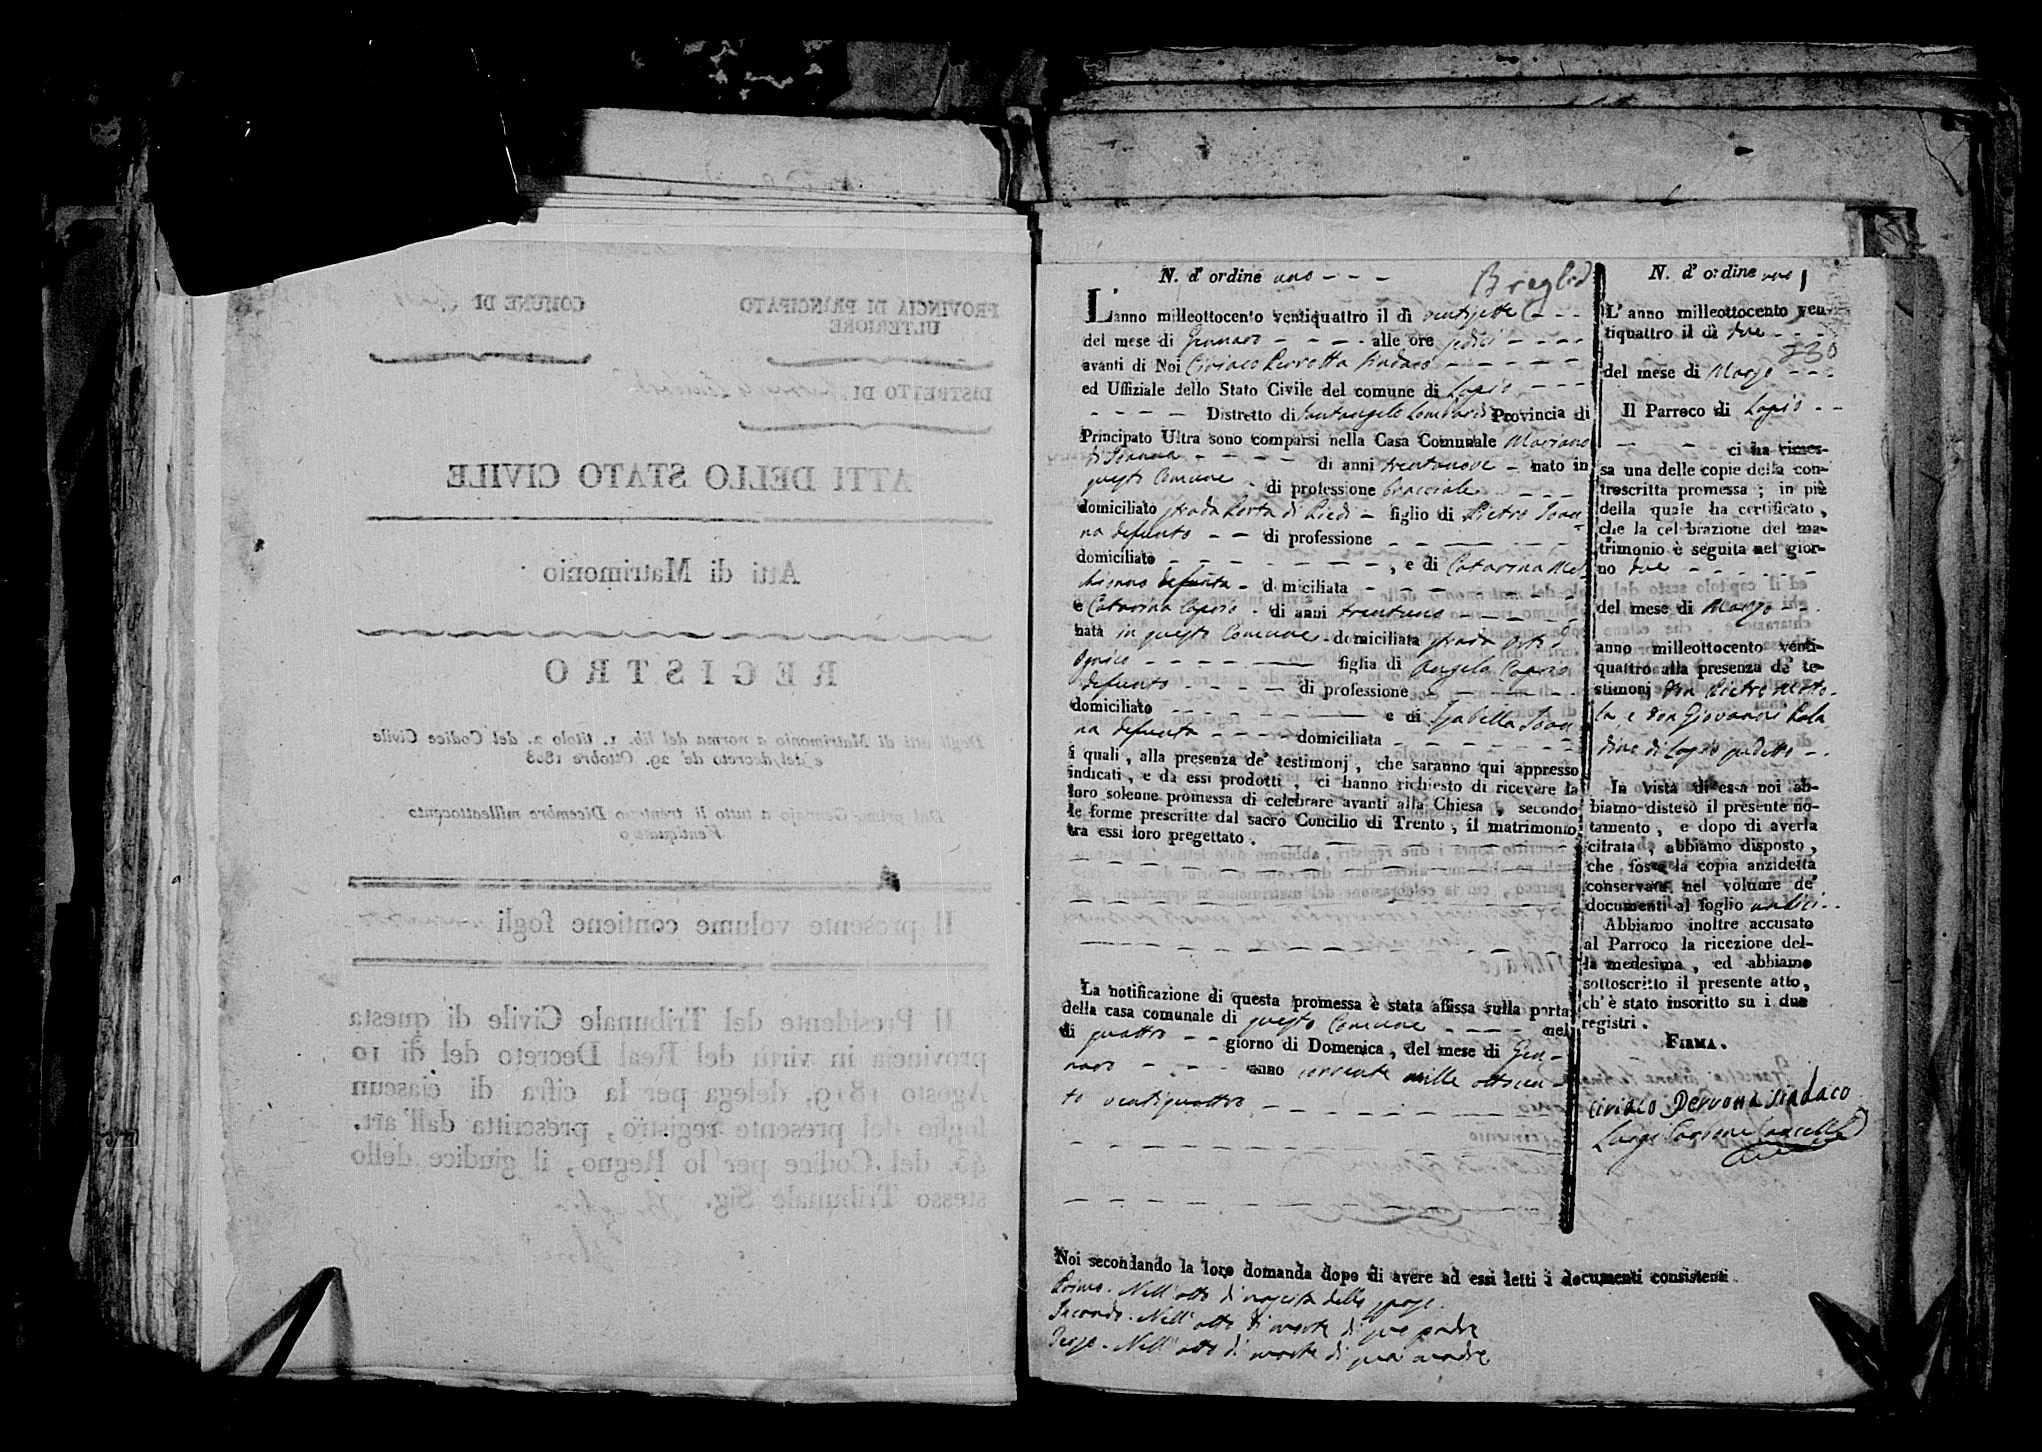 N. d' ordine uno - - -
L'anno milleottocento ventiquattro il dì ventisette - - -
del mese di Gennaro - - - - alle ore sedici - - - -
avanti di Noi Ciriaco Perrotta Sindaco - - - - -
ed Uffiziale dello Stato Civile del comune di Lapio - - -
- - - - Distretto di Santangelo Lombardi Provincia di
Principato Ultra sono comparsi nella Casa Comunale Mariano
di Joanna - - - - - di anni trentanove - nato in
questo Comune - di professione bracciale - - -
domiciliato strada Porta di Piedi - figlio di Pietro Joan-
na defunto - - di professione - - - - -
domiciliato - - - - - - - , e di Catarina
defunta - domiciliata - - - - - -
e Catarina Caprio - di anni trentuno - - - - -
nata in questo Comune - domiciliata strada
- - - - - figlia di Angelo Caprio
defunto - - - - - di professione - - - - -
domiciliato - - - - - e di Isabella Joan-
na defunta - - - - domiciliata - - - - - -
i quali, alla presenza de' testimonj, che saranno qui appresso
indicati, e da essi prodotti, ci hanno richiesto di ricevere la
loro solenne promessa di celebrare avanti alla Chiesa, secondo
le forme prescritte dal sacro Concilio di Trento, il matrimonio
tra essi loro pregettato.
La notificazione di questa promessa è stata affissa sulla porta
della casa comunale di questo Comune - - - - nel
dì quattro - - giorno di Domenica, del mese di Gen-
naro - - - - anno corrente mille ottocen-
to ventiquattro - - - - - - -
Noi secondando la loro domanda dopo di avere ad essi letti i documenti consistenti
Primo - Nell' atto di nascita dello sposo.
Secondo - Nell' atto di morte di suo padre
Terzo - Nell' atto di morte di sua madre
N. d' ordine uno
L' anno milleottocento ven-
tiquattro il dì due - - -
del mese di Marzo - - -
Il Parroco di Lapio - -
- - - ci ha rimes-
sa una delle copie della con-
troscritta promessa; in piè
della quale ha certificato,
che la celebrazione del ma-
trimonio è seguita nel gior-
no due - - - - - -
del mese di Marzo - - .
anno milleottocento venti-
quattro alla presenza de' te-
stimonj don Pietro Motto-
la, e don Giovanni
di Lapio sudetto - .
In vista di essa noi ab-
biamo disteso il presente no-
tamento, e dopo di averla
cifrata, abbiamo disposto,
che fosse la copia anzidetta
conservata nel volume de'
documenti al foglio undici - .
Abbiamo inoltre accusato
al Parroco la ricezione del-
la medesima, ed abbiamo
sottoscritto il presente atto,
ch' è stato inscritto su i due
registri.
FIRMA.
Ciriaco Perrotta Sindaco
Luigi Carbone Cancell.
PROVINCIA DI PRINCIPATO
ULTERIORE
COMUNE DI
DISTRETTO DI
ATTI DELLO STATO CIVILE
Atti di Matrimonio
REGISTRO
Degli atti di Matrimonio a norma del lib. 1. titolo 2. del Codice Civile
e del decreto de' 29. Ottobre 1808
Dal primo Gennajo a tutto li trentuno Dicembre milleottocento
Ventiquattro
Il presente volume contiene fogli
Il Presidente del Tribunale Civile di questa
provincia in virtù del Real Decreto del dì 10
Agosto 1819, delega per la cifra di ciascun
foglio del presente registro, prescritta dall' art.
43. del Codice per lo Regno, il giudice dello
stesso Tribunale Sig.